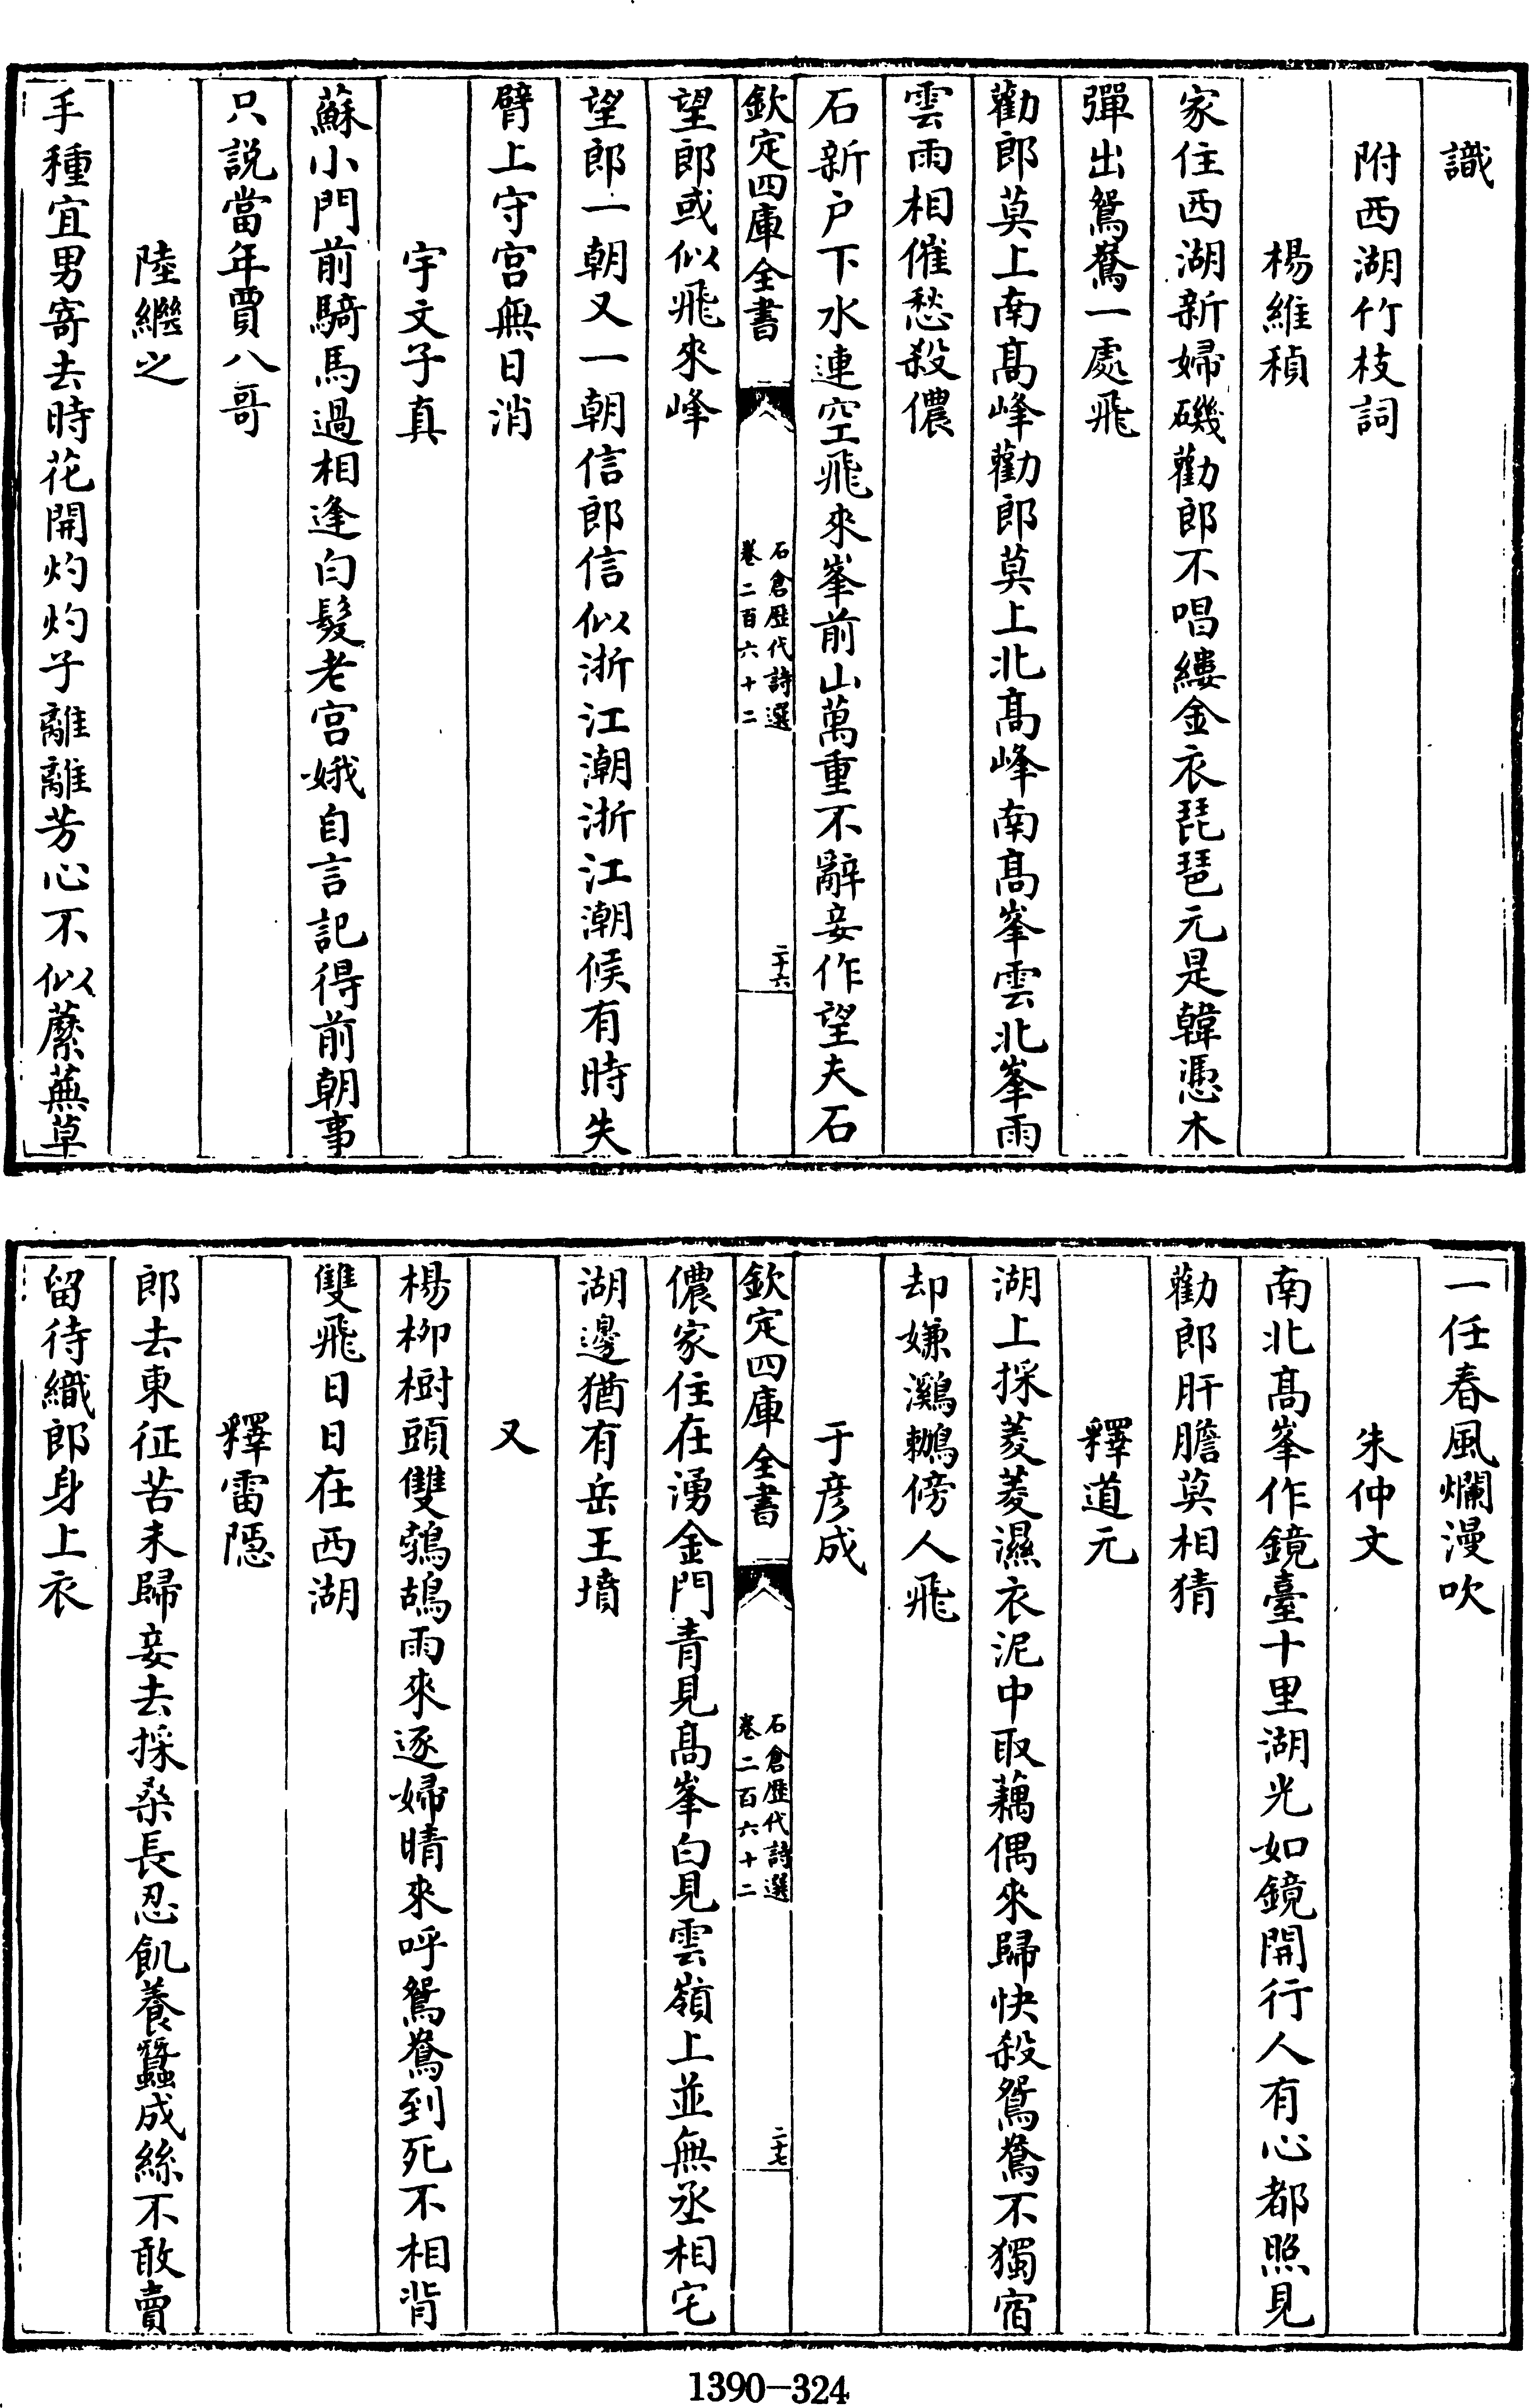 識
附西湖竹枝詞
楊維楨
家住西湖新婦磯勸郎不唱縷金衣琵琶元是韓憑木
彈出鴛鴦一處飛
勸郎莫上南髙峰勸郎莫上北髙峰南髙峯雲北峯雨
雲雨相催愁殺儂
石新户下水連空飛來峯前山萬重不辭妾作望夫石
欽定四庫全書
石倉歴代詩選
卷二百六十二
二十六
望郎或似飛來峰
望郎一朝又一朝信郎信似浙江潮浙江潮候有時失
臂上守宫無日消
宇文子真
蘇小門前騎馬過相逢白髮老宫娥自言記得前朝事
只説當年賈八哥
陸繼之
手種宜男寄去時花開灼灼子離離芳心不似蘼蕪草
一任春風爛漫吹
朱仲文
南北髙峯作鏡臺十里湖光如鏡開行人有心都照見
勸郎肝膽莫相猜
釋道元
湖上採菱菱濕衣泥中取藕偶來歸快殺鴛鴦不獨宿
却嫌鸂鶒傍人飛
于彦成
欽定四庫全書
石倉歴代詩選
卷二百六十二
二十七
儂家住在湧金門青見髙峯白見雲嶺上並無丞相宅
湖邊猶有岳王墳
又
楊柳樹頭雙鵓鴣雨來逐婦晴來呼鴛鴦到死不相背
雙飛日日在西湖
釋雷隱
郎去東征苦未歸妾去採桑長忍飢養蠶成絲不敢賣
留待織郎身上衣
1390-324